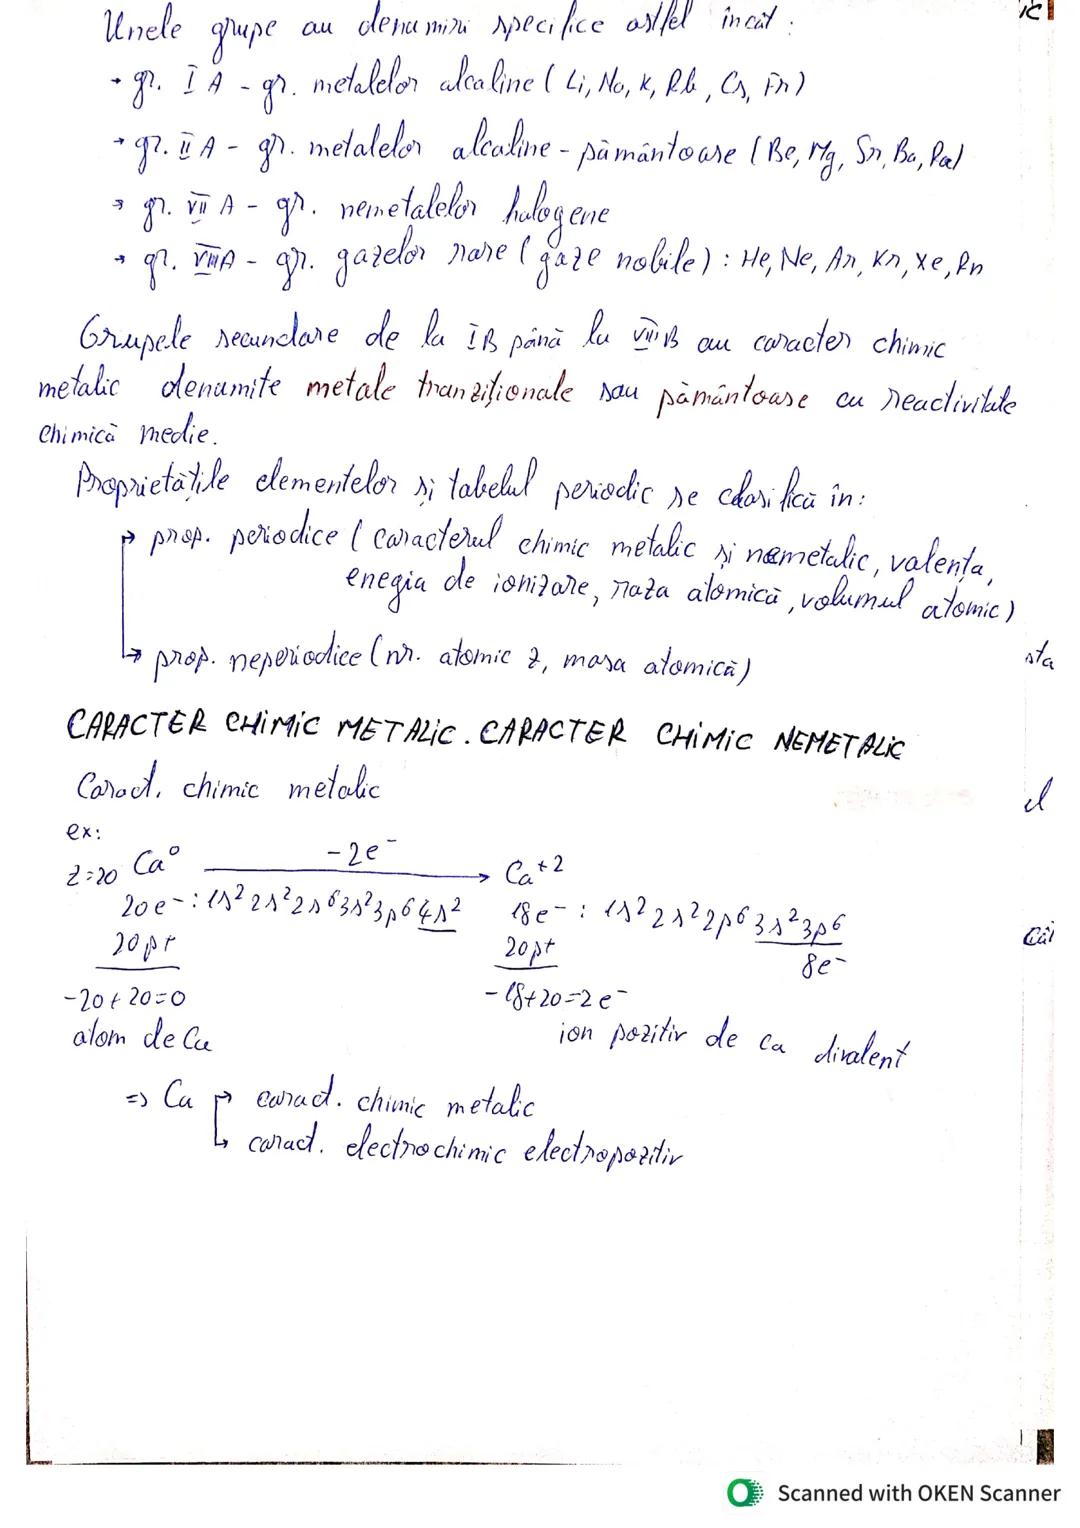 Unele grupe au denumiri specifice astfel încât:
→ gr. I A - gr. metalelor alcaline (Li, Na, K, Rb, Cs, Fr)
→ gr. II A - gr. metalelor alcaline - pământoase (Be, Mg, Sr, Ba, Ra)
→ gr. VII A - gr. nemetalelor halogene
→ gr. VIII A - gr. gazelor rare (gaze nobile): He, Ne, Ar, Kr, Xe, Rn
Grupele secundare de la I B până la VIII B au caracter chimic
metalic denumite metale tranziționale sau pământoase cu reactivitate
chimică medie.
Proprietățile elementelor și tabelul periodic se clasifică în:
→ prop. periodice (caracterul chimic metalic și nemetalic, valența,
enegia de ionizare, raza atomică, volumul atomic)
→ prop. neperiodice (nr. atomic z, masa atomică)
sta
CARACTER CHIMIC METALIC. CARACTER CHIMIC NEMETALIC
Caract. chimic metalic
el
ex:
Z=20 Ca⁰ -2e⁻ → Ca⁺²
20e⁻: 1s² 2s² 2s⁶ 3s² 3p⁶ 4s² 18e⁻: 1s² 2s² 2p⁶ 3s² 3p⁶
20p+ 20p+ 8e⁻
-20+20=0 -18+20=2e⁻
atom de Ca ion pozitiv de Ca divalent
=> Ca → caract. chimic metalic
→ caract. electrochimic electropozitiv
Scanned with OKEN Scanner